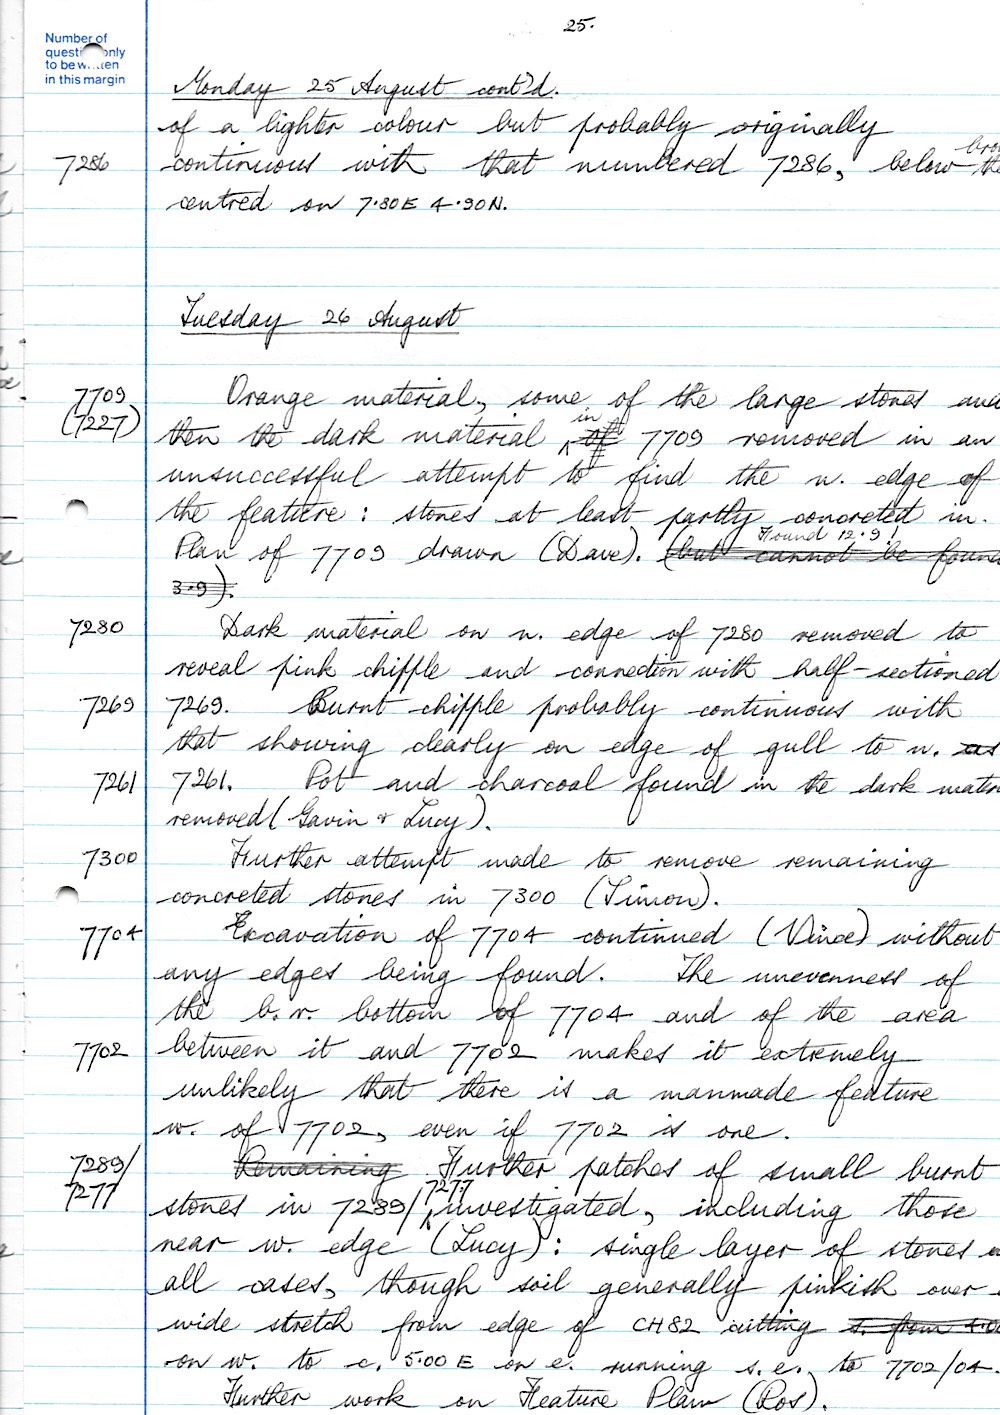 25.
Number of
question only
to be written
in this margin
Monday 25 August cont'd.
of a lighter colour but probably originally
7286 continuous with that numbered 7286, below the
centred on 7.80E 4.90N.
Tuesday 26 August
7709 Orange material, some of the large stones and
(7227) then the dark material in of 7709 removed in an
unsuccessful attempt to find the n. edge of
the feature: stones at least partly concreted in.
Found 12.9!
Plan of 7709 drawn (Dave). (but cannot be found
3.9).
7280 Dark material on n. edge of 7280 removed to
reveal pink chipple and connection with half-sectioned
7269 7269. Burnt chipple probably continuous with
that showing clearly on edge of gull to n. as
7261 7261. Pot and charcoal found in the dark
removed (Gavin & Lucy).
7300 Further attempt made to remove remaining
concreted stones in 7300 (Simon).
7704 Excavation of 7704 continued (Vince) without
any edges being found. The unevenness of
the b.r. bottom of 7704 and of the area
7702 between it and 7702 makes it extremely
unlikely that there is a manmade feature
w. of 7702, even if 7702 is one.
7289/ Remaining Further patches of small burnt
7277 stones in 7289/7277 investigated, including those
near w. edge (Lucy): single layer of stones
all cases, though soil generally pinkish over
wide stretch from edge of CH82 cutting s. from
on w. to c. 5.00E on e. running s.e. to 7702/04.
Further work on Feature Plan (Ros).